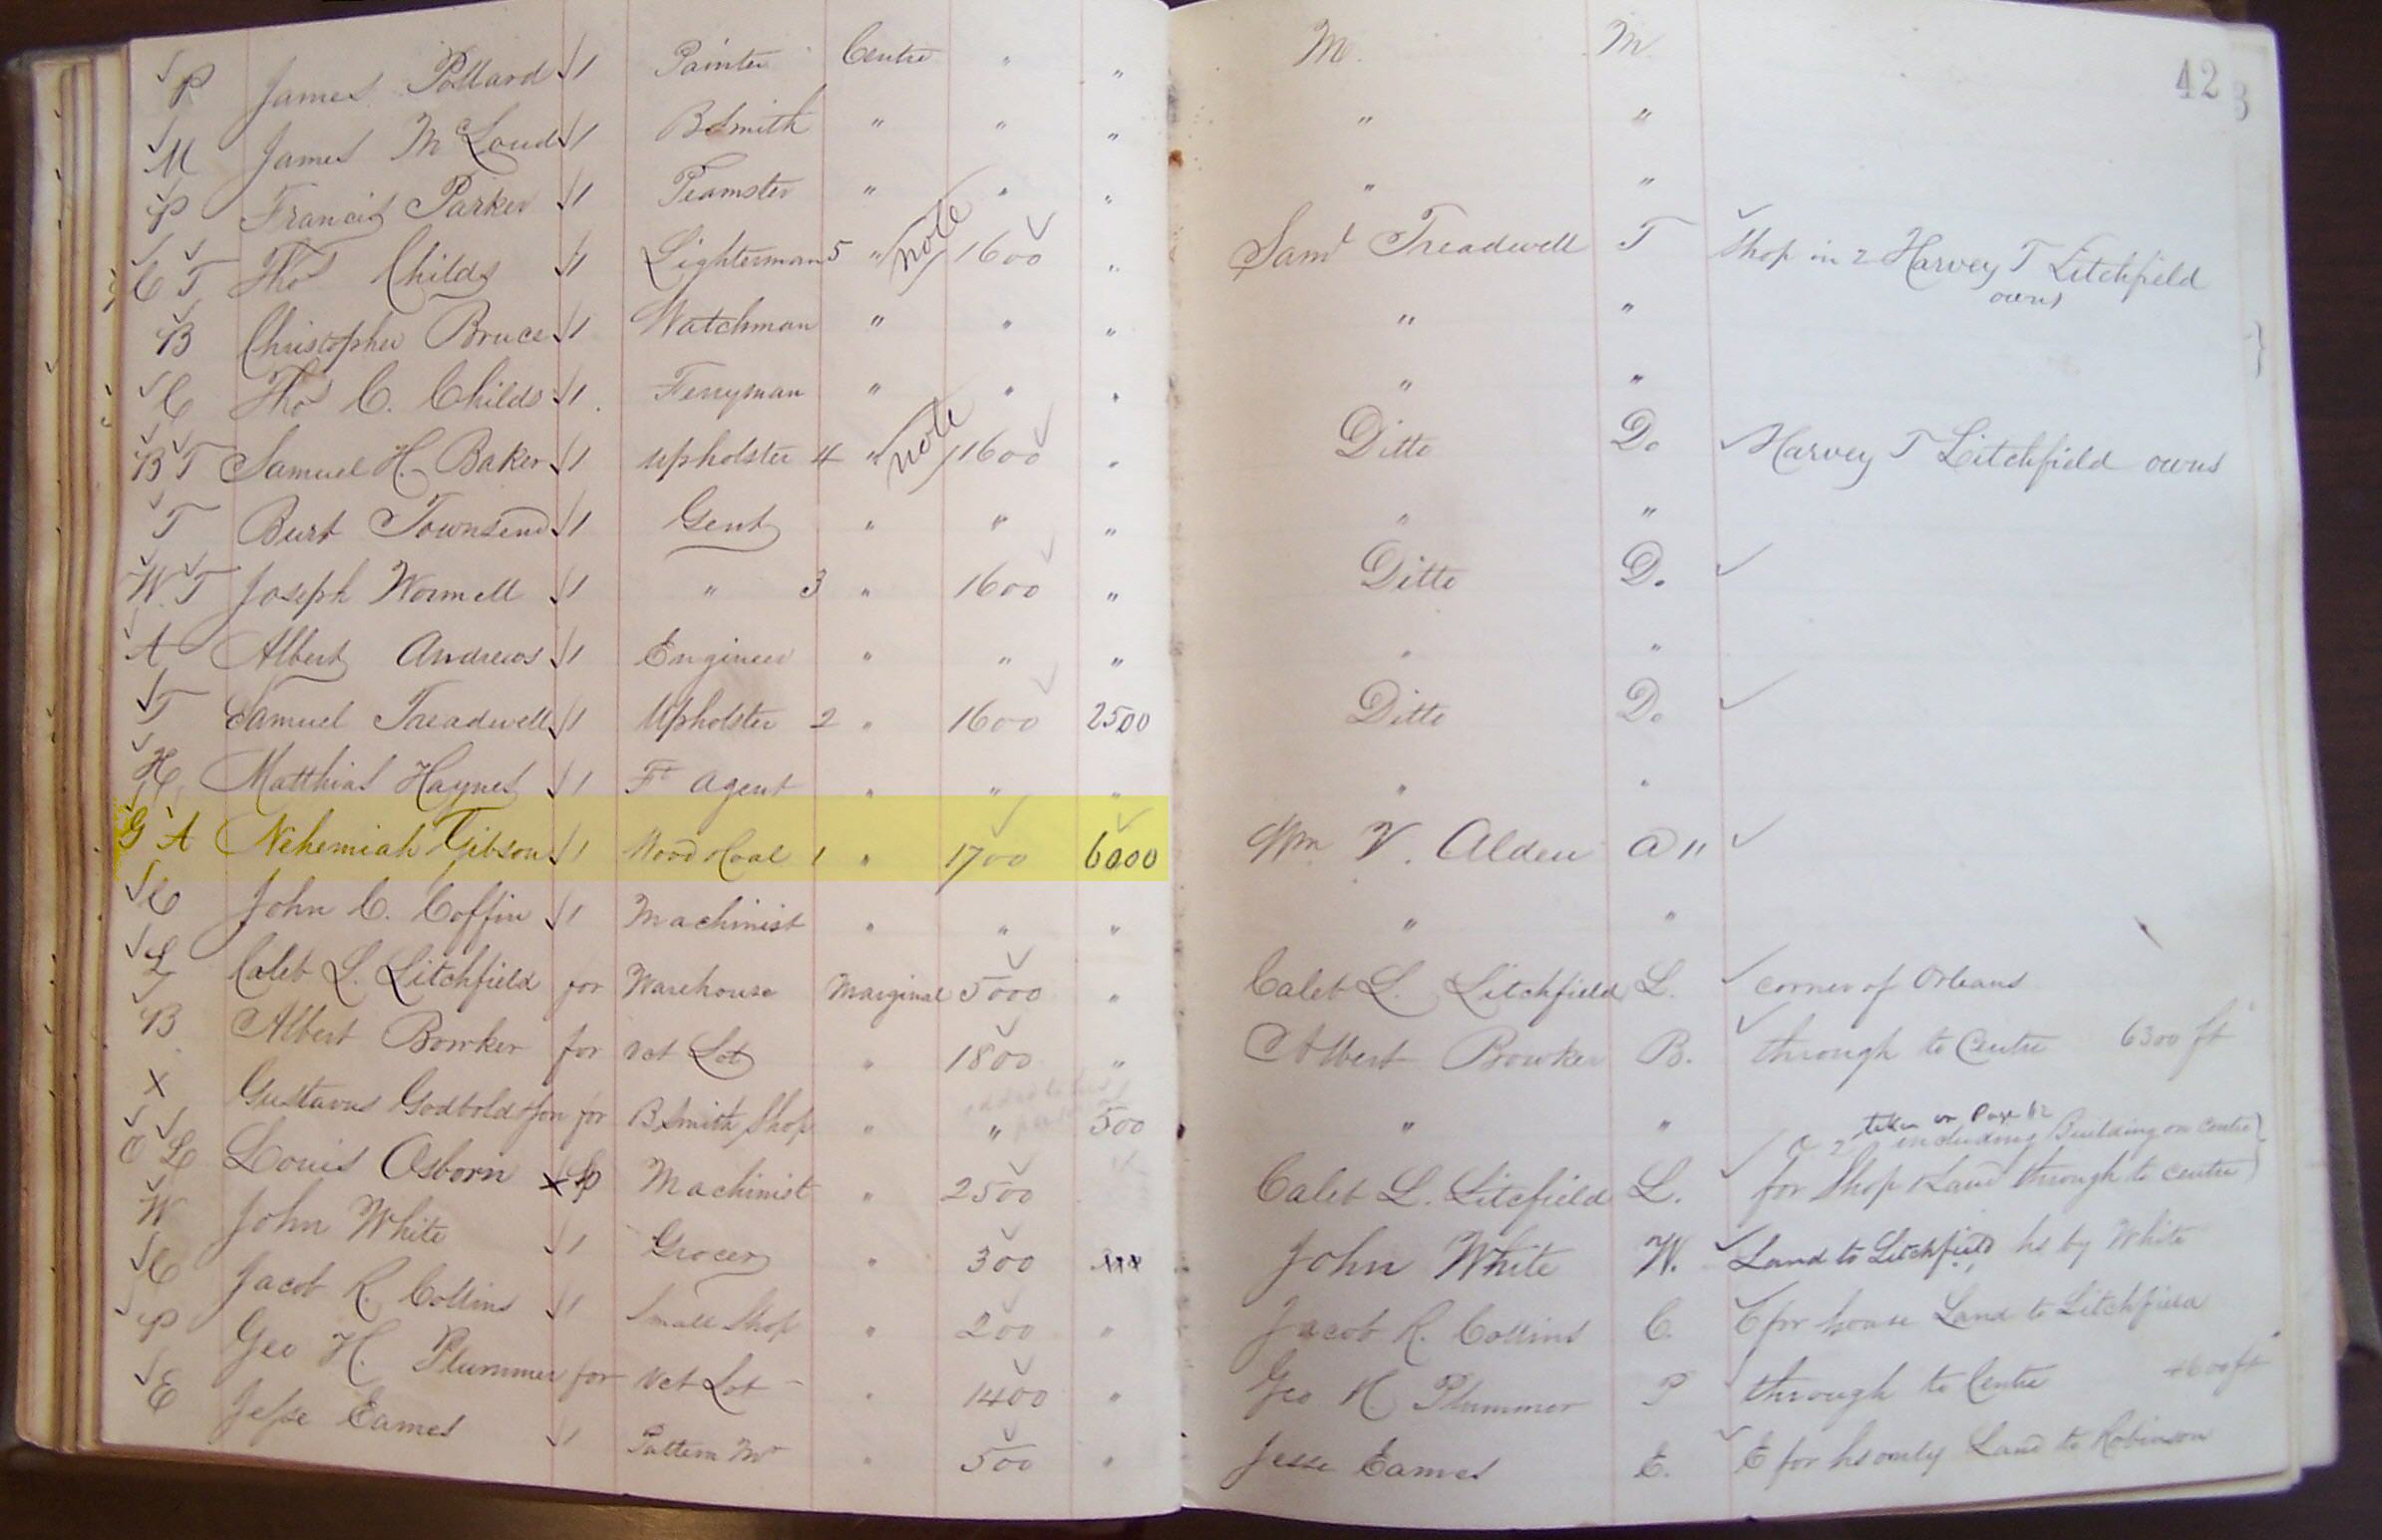 P James Pollard 1 Painter Centre " " M. M. 42
M James McLoud 1 BSmith " " " " "
P Francis Parker 1 Teamster " " " " "
C T Thos Childs 1 Lighterman 5 " note 1600 " Saml Treadwell T Shop in 2 Harvey T Litchfield
owns
B Christopher Bruce 1 Watchman " " " " "
C Thos C. Childs 1 Ferryman " " " " "
B T Samuel H. Baker 1 Upholster 4 " note 1600 " Ditto Do Harvey T Litchfield owns
T Burt Townsend 1 Gent " " " " "
W T Joseph Wormell 1 " 3 " 1600 " Ditto Do
A Albert Andrews 1 Engineer " " " " "
T Samuel Treadwell 1 Upholster 2 " 1600 2500 Ditto Do
H Matthias Haynes 1 Ft Agent " " " " "
G A Nehemiah Gibson 1 Wood & Coal 1 " 1700 6000 Wm V. Alden a "
C John C. Coffin 1 Machinist " " " " "
L Caleb L. Litchfield for Warehouse Marginal 5000 " Caleb L. Litchfield L. corner of Orleans
B Albert Bowker for Vct Lot " 1800 " Albert Bowker B. through to Centre 6300 ft
X Gustavus Godbold & Son for BSmith Shop " " 500 " "
taken on Page 62
including Building on Centre
O L Louis Osborn X Machinist " 2500 Caleb L. Litcfield L. for Shop & Land through to centre
W John White 1 Grocer " 300 John White W. Land to Litchfield hs by White
C Jacob R. Collins 1 Small Shop " 200 " Jacob R. Collins C. C for house Land to Litchfield
P Geo H. Plummer for Vct Lot " 1400 " Geo H. Plummer P through to Centre 4600 ft
E Jesse Eames 1 Pattern Mr " 500 " Jesse Eames E. E for hs only Land to Robinson